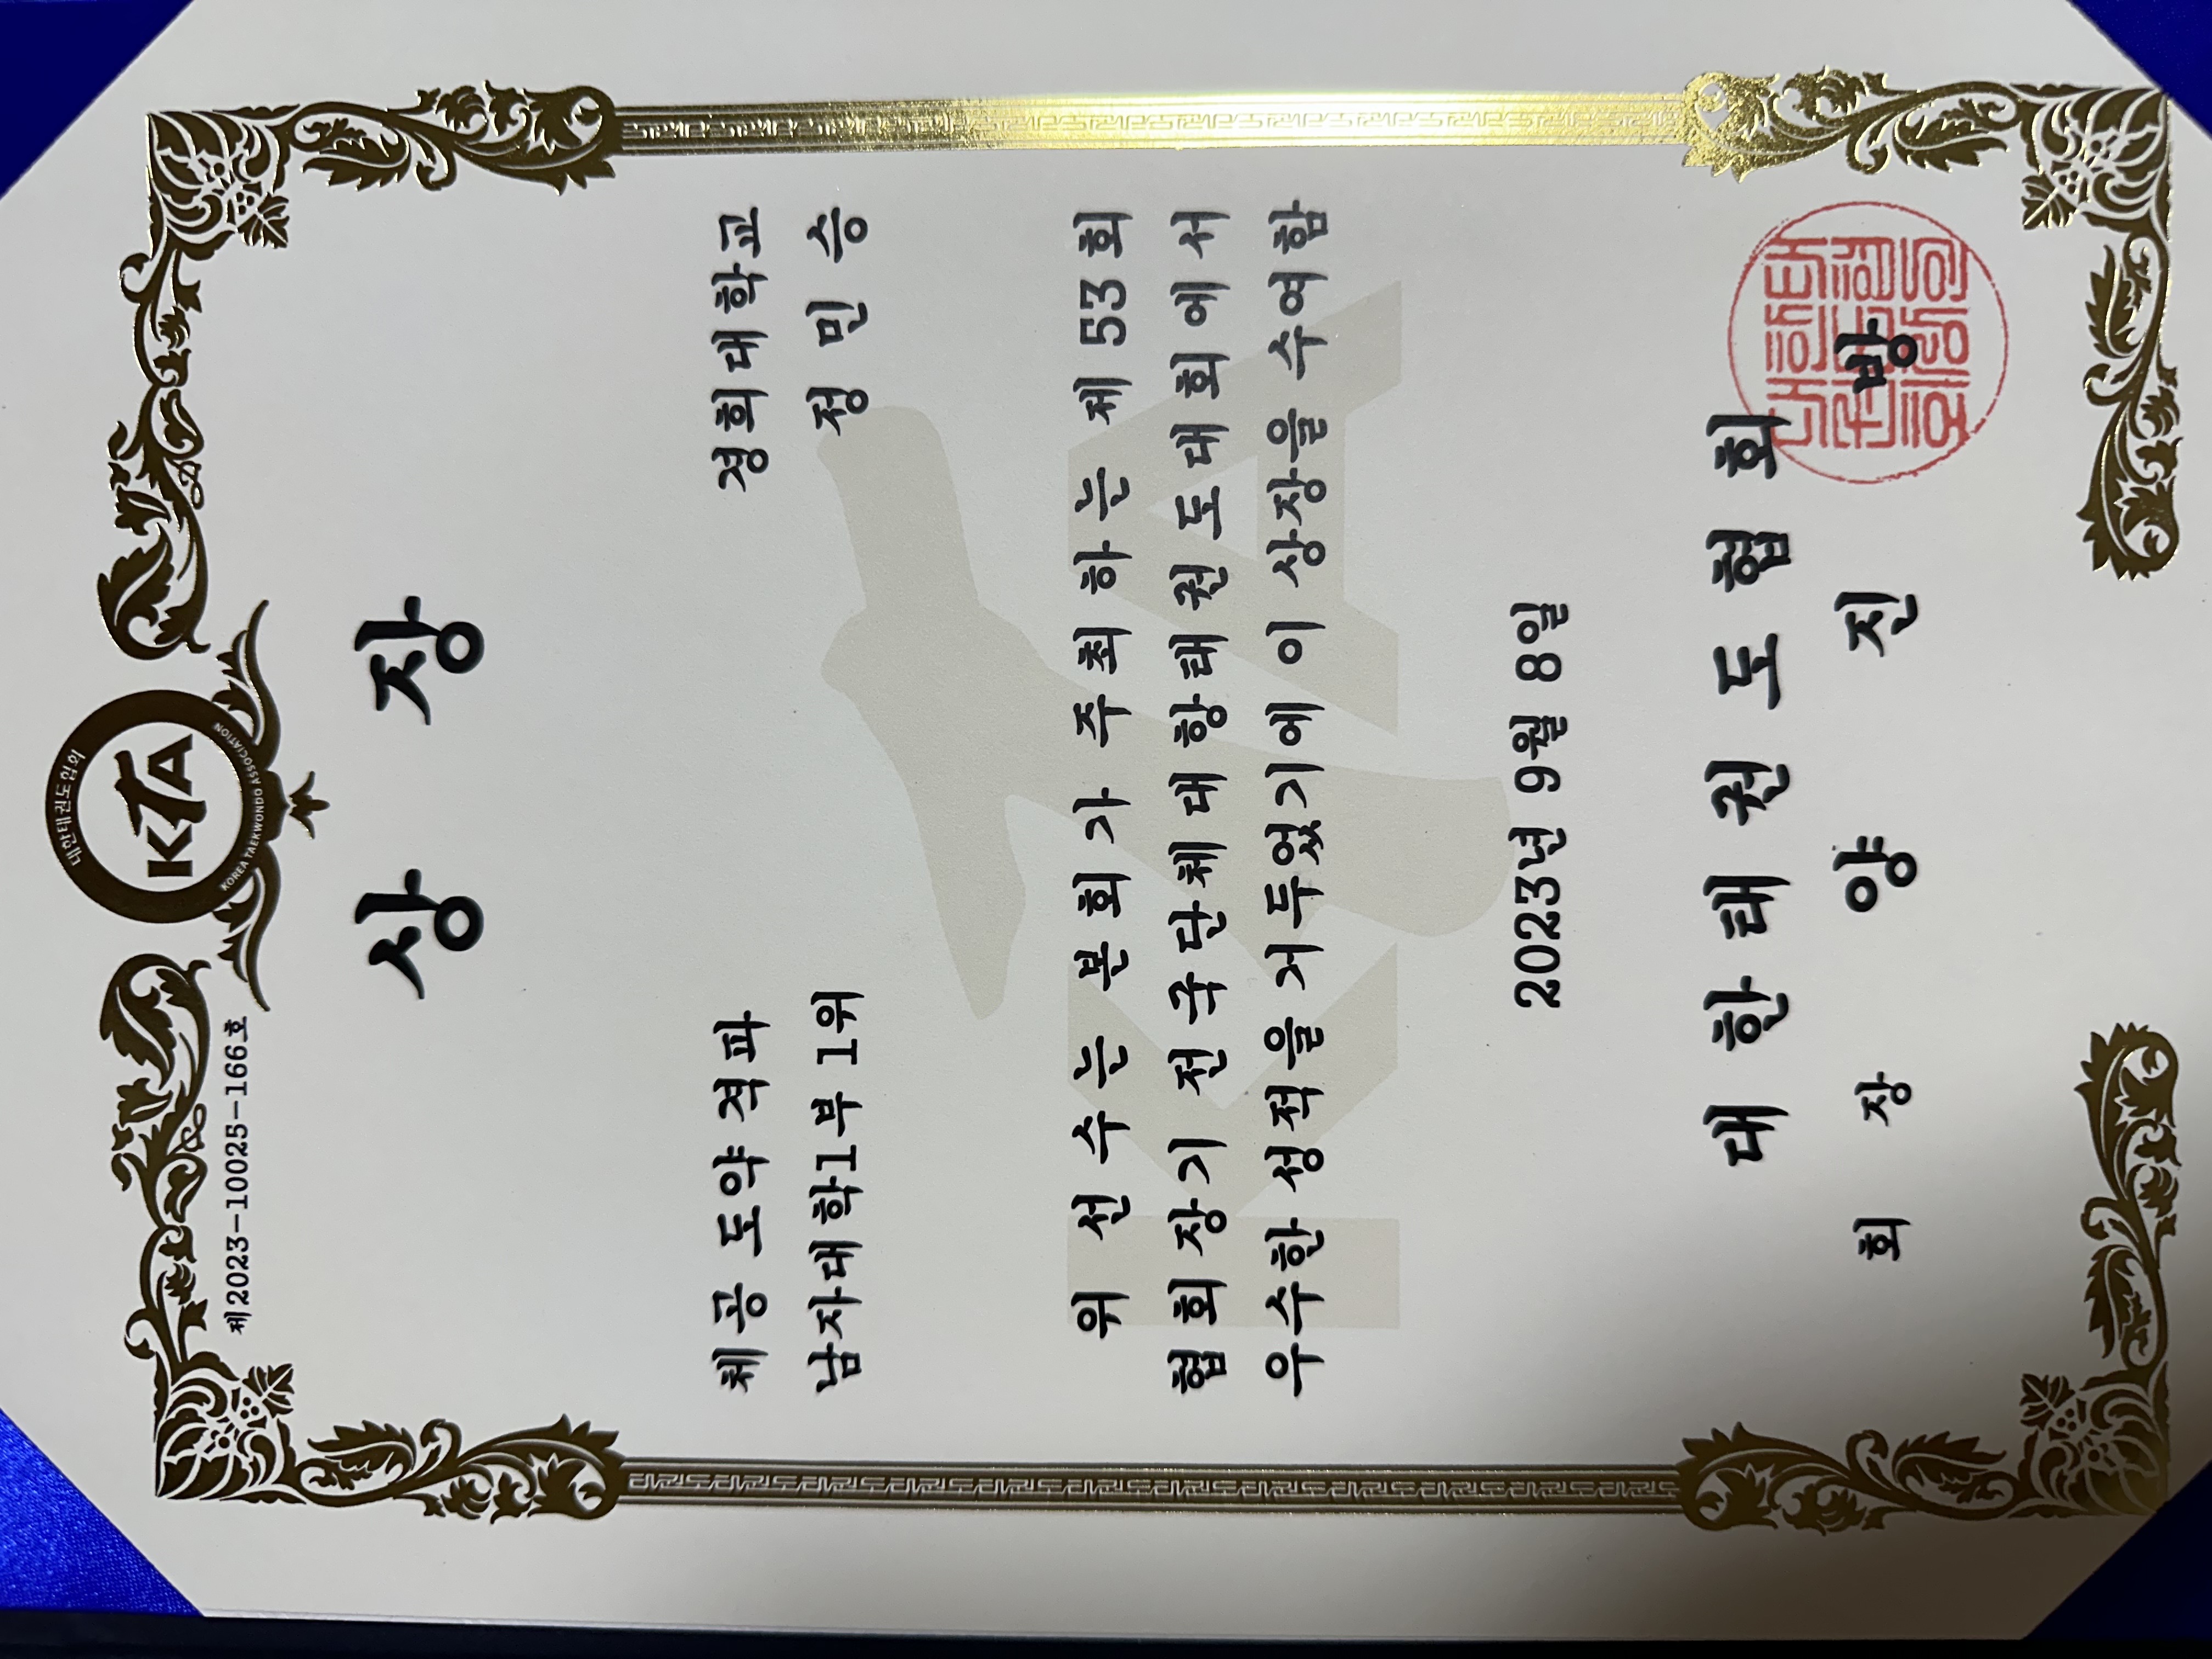 제2023-10025-166호
대한태권도협회
KTA
KOREA TAEKWONDO ASSOCIATION
상 장
체공 도약 격파 경희대학교
남자대학1부 1위 정 민 승
위 선수는 본회가 주최하는 제 53 회
협회장기 전국단체대항태권도대회에서
우수한 성적을 거두었기에 이 상장을 수여함
2023년 9월 8일
대 한 태 권 도 협 회
회 장 양 진 방